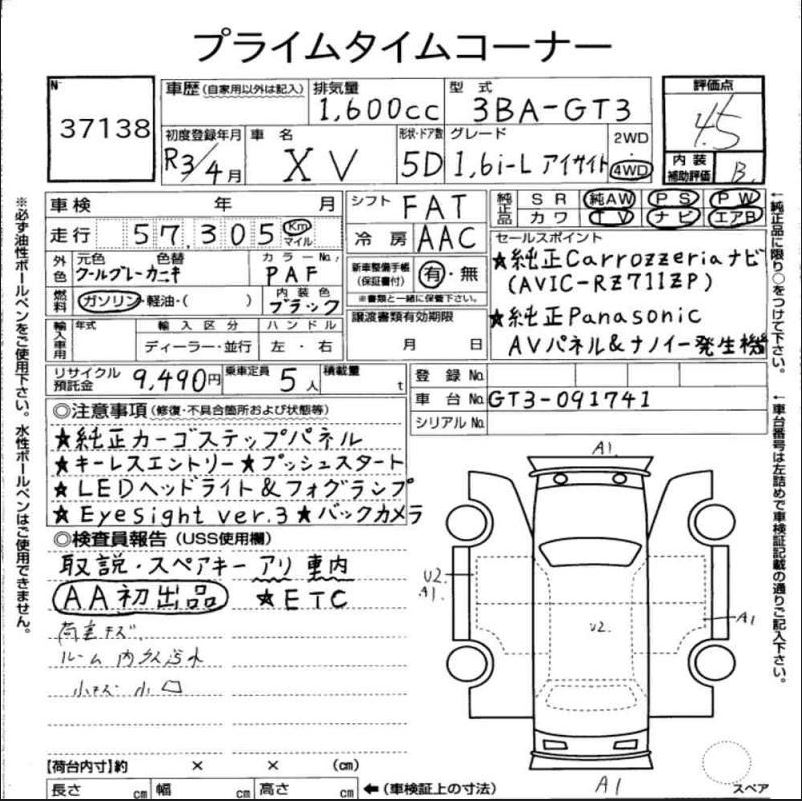 プライムタイムコーナー
№
37138
車歴 (自家用以外は記入)
排気量
1,600cc
型 式
3BA-GT3
評価点
4.5
初度登録年月
R3/4月
車 名
XV
形状・ドア数
5D
グレード
1,6i-L アイサイト
2WD
・
4WD
内 装
補助評価
B
※必ず油性ボールペンをご使用下さい。水性ボールペンはご使用できません。
車検 年 月
走行 57,305 Km
マイル
外色
元色 色替
クールグレーカーキ
カラーNo.
PAF
燃料
ガソリン・軽油・( )
内装色
ブラック
輸入車用
年式
輸入区分
ディーラー・並行
ハンドル
左・右
シフト FAT
冷房 AAC
新車整備手帳
(保証書付)
有・無
※書類と一緒に保管下さい。
譲渡書類有効期限
月 日
純正品
SR 純AW PS PW
カワ TV ナビ エアB
セールスポイント
★純正Carrozzeriaナビ
(AVIC-RZ711ZP)
★純正Panasonic
AVパネル&ナノイー発生機
←純正品に限り○をつけて下さい。
←車台番号は左詰めで車検証記載の通りご記入下さい。
リサイクル
預託金
9,490円
乗車定員 5人
積載量 t
登録 No.
車台 No. GT3-091741
シリアル No.
◎注意事項 (修復・不具合箇所および状態等)
★純正カーゴステップパネル
★キーレスエントリー★プッシュスタート
★LEDヘッドライト&フォグランプ
★Eyesight ver.3★バックカメラ
◎検査員報告 (USS使用欄)
取説・スペアキー アリ 車内
AA初出品 ★ETC
荷室キズ
ルーム内
小キズ 小凹
A1
U2
A1
U2
A1
A1
スペア
【荷台内寸】約 × × (cm)
長さ cm 幅 cm 高さ cm ←(車検証上の寸法)